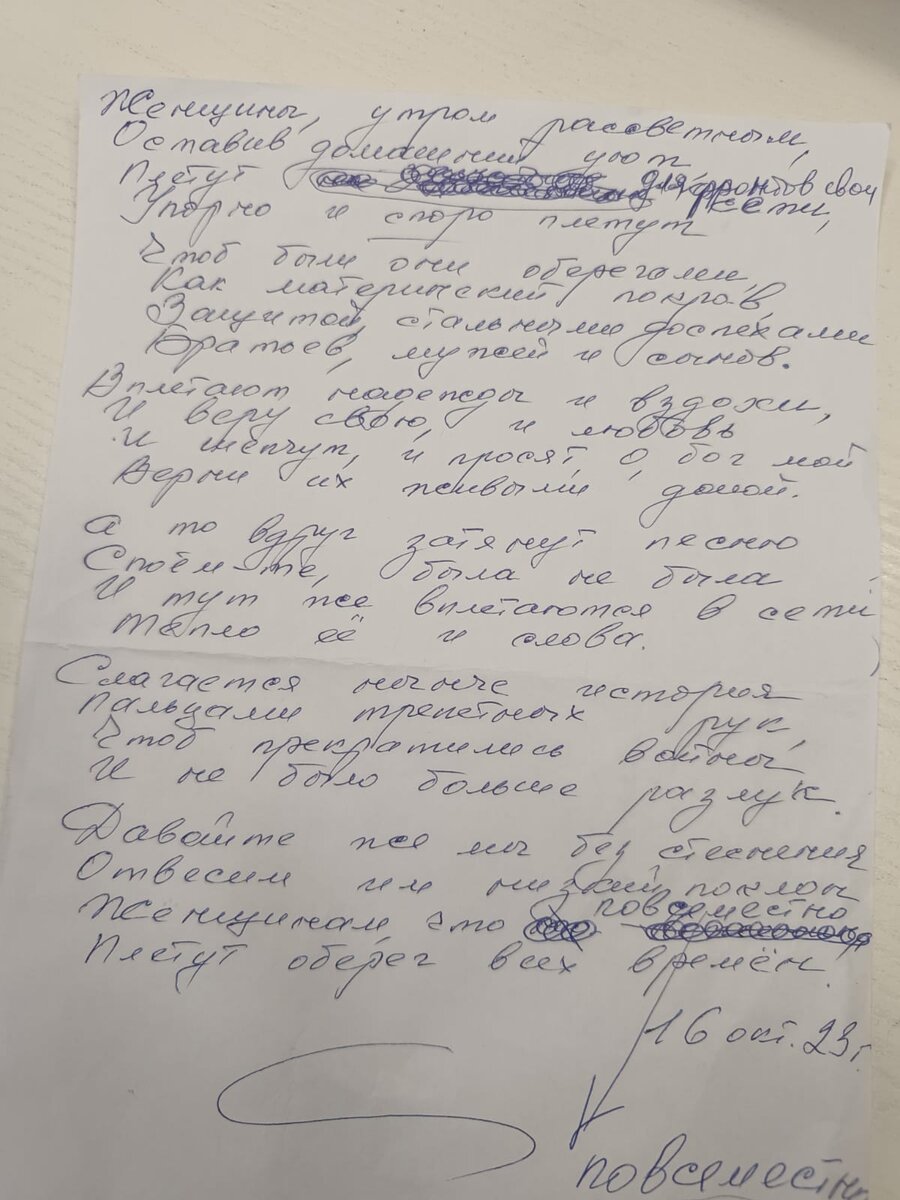 Женщины, утром рассветным,
Оставив домашний уют
Плетут для фронтов свои
сети,
Упорно и споро плетут
Чтоб были они оберегами,
Как материнский покров,
Защитой, стальными доспехами
Братьев, мужей и сынов.
Вплетают надежды и вздохи,
И веру свою, и любовь
И шепчут, и просят, о, бог мой
Верни их живыми домой.
А то вдруг затянут песню
Споём-те, была не была
И тут же вплетаются в сети
Тепло её и слова.
Слагается нынче история
Пальцами трепетных рук,
Чтоб прекратились войны
И не было больше разлук.
Давайте же мы без стеснения
Отвесим им низкий поклон
Женщинам, что повсеместно
Плетут оберег всех времён.
16 окт. 23 г.
повсеместно